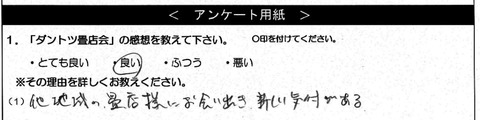 ＜ アンケート用紙 ＞
1．「ダントツ畳店会」の感想を教えて下さい。 ○印を付けてください。
・とても良い ・良い ・ふつう ・悪い
※その理由を詳しくお教えください。
(1) 他地域の畳店様にお会い出き 新しい気付がある